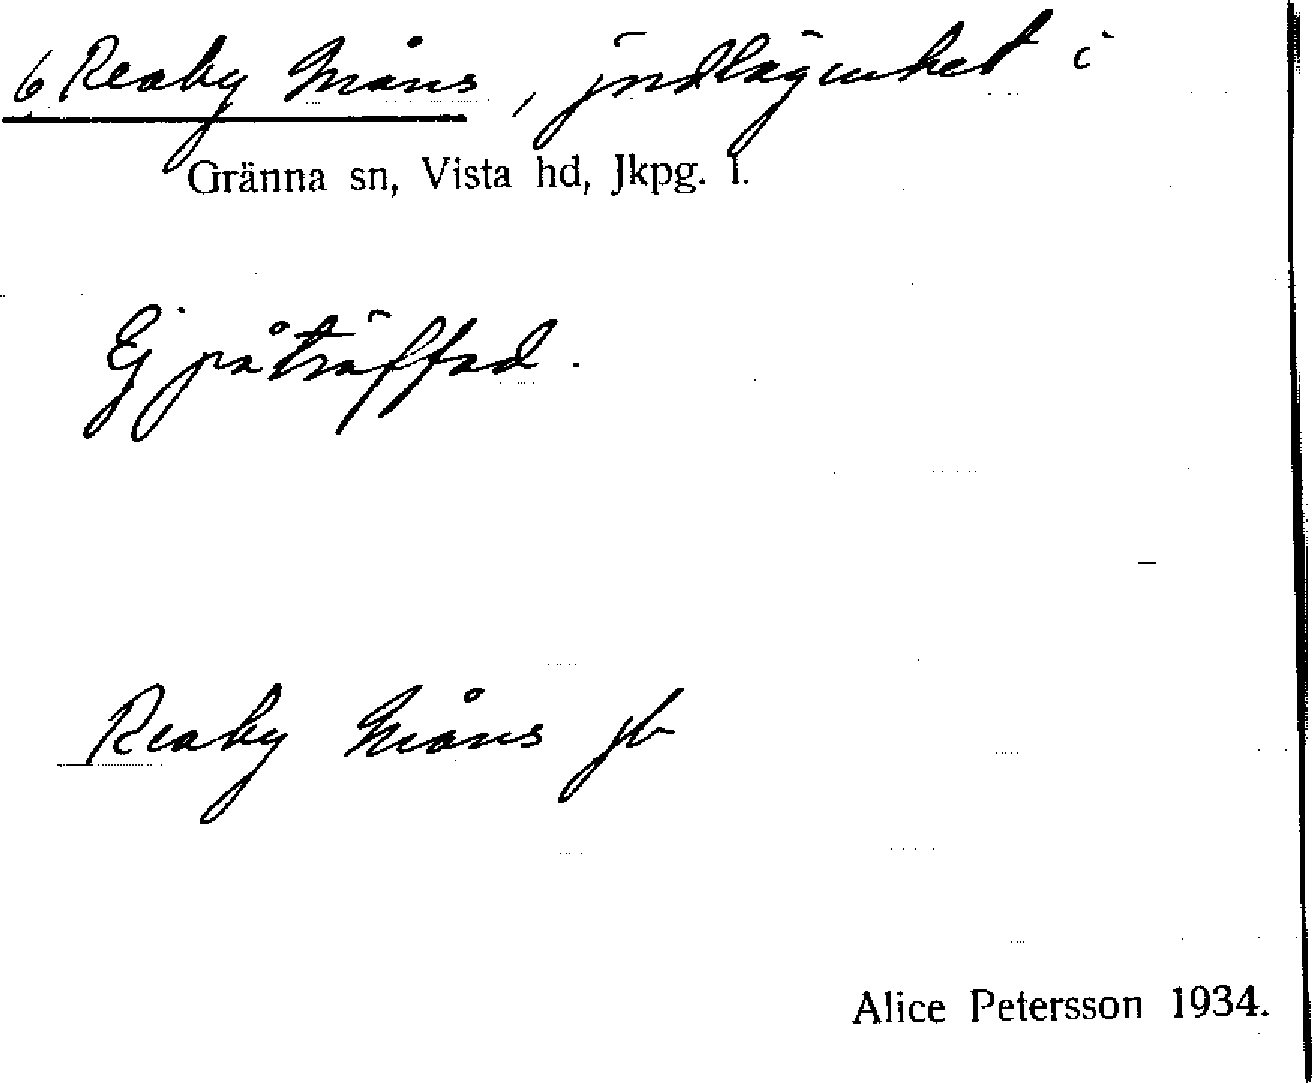 6 Reaby Måns, jordlägenhet i
Gränna sn, Vista hd, Jkpg. l.
Ej påträffad.
Reaby Måns jb
Alice Petersson 1934.